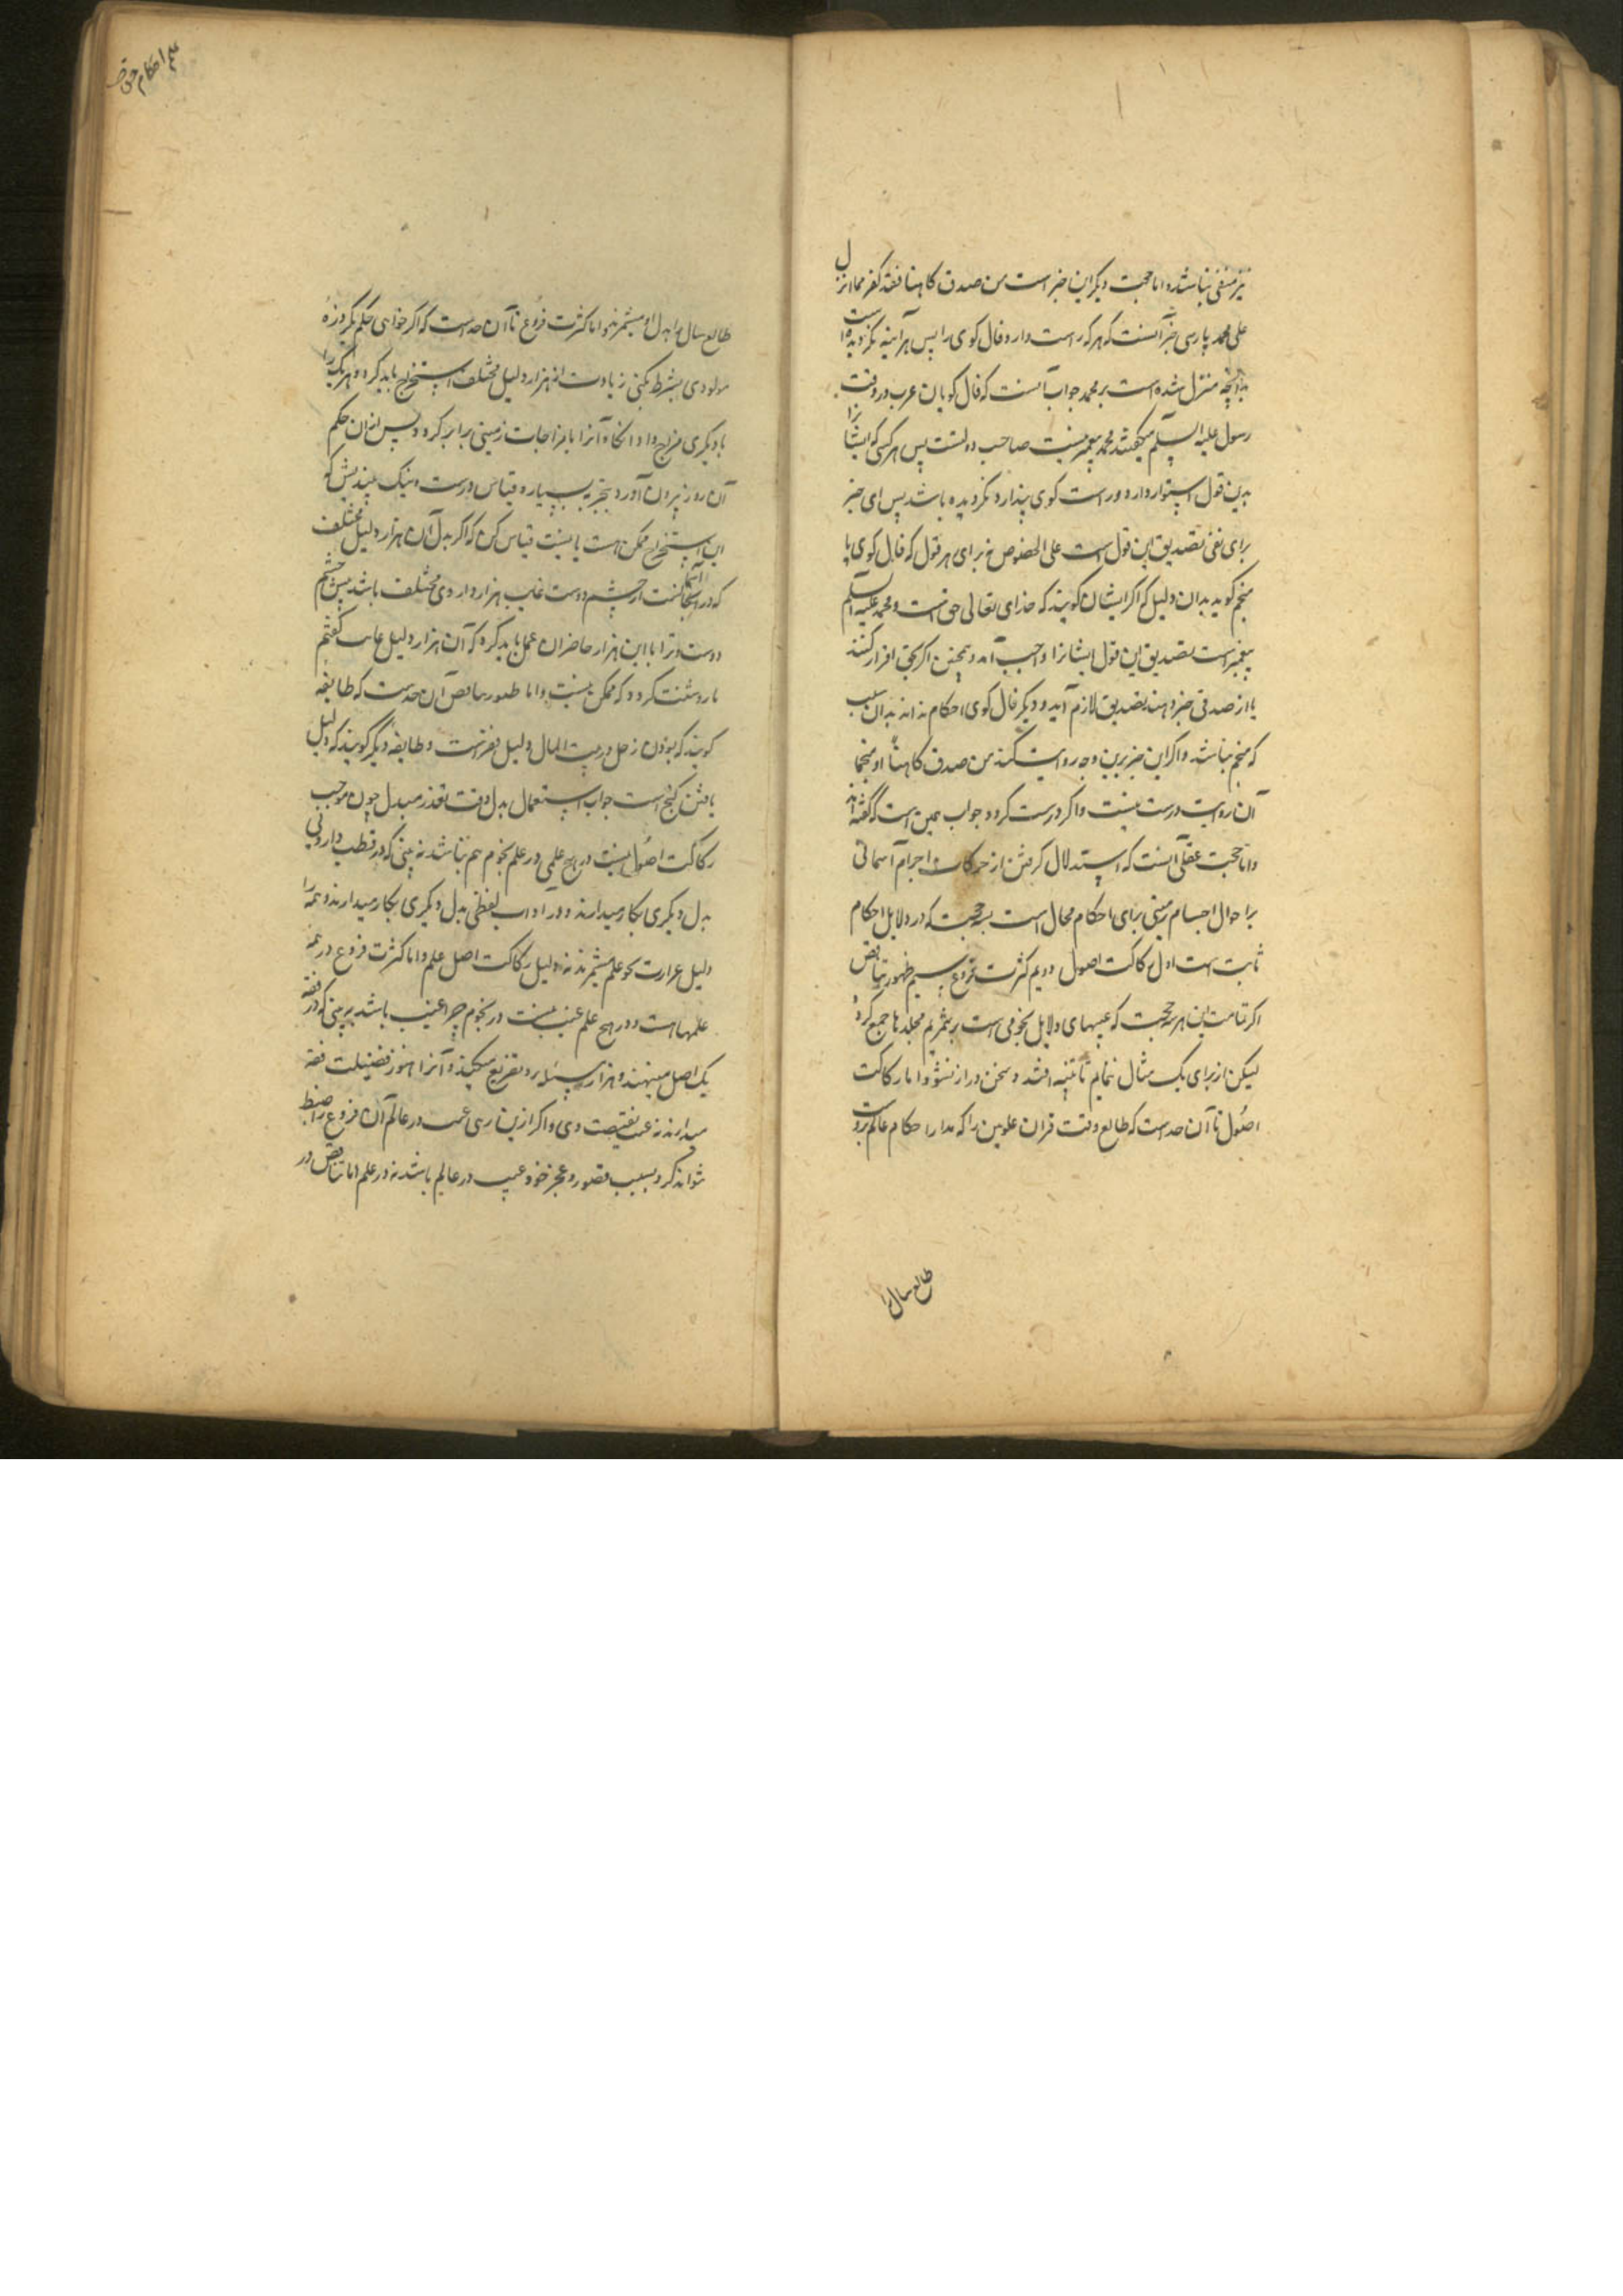 نیز منفی نباشد و اما حجت دیگر این خبر است من صدق کاهنا فقد کفر مما انزل
علی محمد پارسی خبر آنست که هرکه راست دارد فال کوی را پس هرآینه نکرویده است
بدانچه منزل شده است بر محمد جواب آنست که فال کویان عرب در وقت
رسول علیه السلم میکفتند محمد پیغمبر نیست صاحب دولتست پس هرکسی که ایشانرا
بدین قول استوار دارد و راست کوی پندارد نکرویده باشد پس ای خبر
برای نفی تصدیق این قول است علی الخصوص نه برای هر قول که فال کوی یا
منجم کوید بدان دلیل که اکر ایشان کویند که خدای تعالی حق است و محمد علیه السلم
پیغمبر است تصدیق این قول ایشانرا واجب آمد و همچنین اکر بحق اقرار کنند
یا از صدقی خبر دهند تصدیق لازم آید و دیکر فال کوی احکام نداند بدان سبب
که منجم نباشد و اکر این خبر برین وجه روایت کنند من صدق کاهنا او منجما
آن روایت درست نیست و اکر درست کردد جواب همین است که گفته اند
و اما حجت عقلی اینست که استدلال کرفتن از حرکات اجرام آسمانی
بر احوال اجسام زمینی برای احکام محال است بسه حجت که در دلایل احکام
ثابت است اول رکاکت اصول دویم کثرت فروع سیم ظهور تناقض
اکر تمامت این هر سه حجت که عیبهای دلایل نجومی است برشمریم مجلدها جمع کردد
لیکن از برای یک مثال نمایم تا تنبیه افتد و سخن دراز نشود اما رکاکت
اصول تا آن حد است که طالع وقت قران علویین را که مدار احکام عالم بروست
طالع سال را
طالع سال را بدل او میشمرند و اما کثرت فروع تا آن حد است که اکر خواهی حکم یکروزه
مولودی بشرط بکنی زیادت از هزار دلیل مختلف استخراج باید کرد و هر یک را
با دیکری مزاج داد انکاه آنرا با مزاجات زمینی برابر کرد و پس از آن حکم
آن روز بیرون آورد بتجربه بسیار و قیاس درست و نیک بیندیش که
این استخراج ممکن هست یا نیست قیاس کن که اکر بدل آن هزار دلیل مختلف
که در آسمانست از چشم دوست غایب هزار داروی مختلف باشد پیش چشم
دوست و ترا با این هزار حاضران عمل باید کرد که آن هزار دلیل غایب کفتم
تا روشنت کردد که ممکن نیست و اما ظهور تناقض آن حد است که طایفه
کویند که بودن زحل در بیت المال دلیل فقرست و طایفه دیکر کویند که دلیل
یافتن کنج است جواب استعمال بدل وقت تعذر مبدل چون موجب
رکاکت اصول نیست در هیچ علمی در علم نجوم هم نباشد نه بینی که در طب داروئی
بدل دیکری بکار میدارند و در آداب لفظی بدل دیکری بکار میدارند و همه را
دلیل غزارت علم میشمرند نه دلیل رکاکت اصل علم و اما کثرت فروع در همه
علمها است و در هیچ علم عیب نیست در نجوم چرا عیب باشد نه بینی که در فقه
یک اصل مینهند و هزار مسئله برو تفریع میکنند و آنرا هنوز فضیلت فقه
میدارند نه عیب و نقیصت وی و اکر ازین رسی عیب در عالم آن فروع را ضبط
نتواند کرد بسبب قصور و عجز خود عیب در عالم باشد نه در علم اما تناقض در